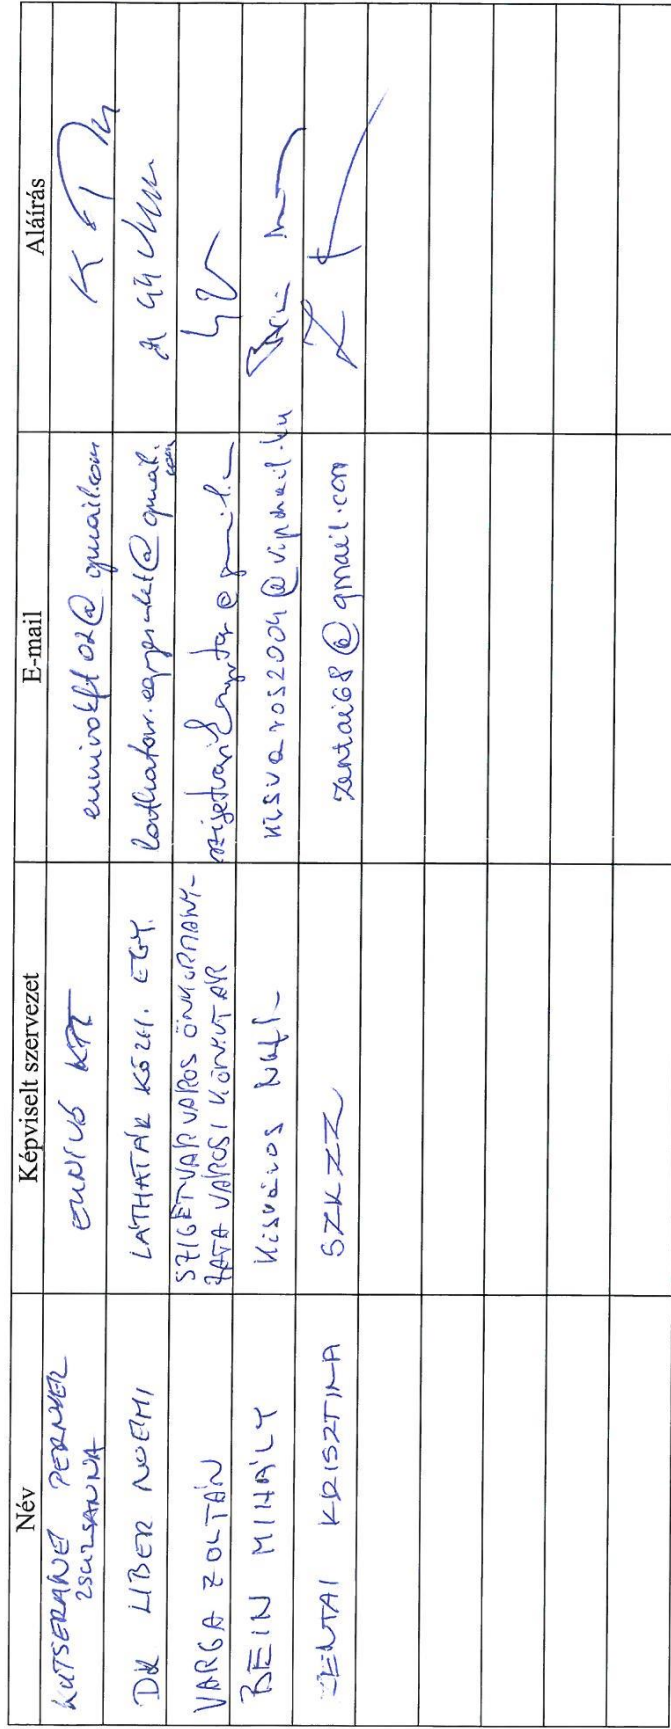 Név Képviselt szervezet E-mail Aláírás
KUTSERANÉ PERNYER
ZSUZSANNA
EUNIVÓ KFT
eunivokft02@gmail.com
DR LIBER NOÉMI
LÁTHATÁR KÖZH. EGY.
lathatar.egyesulet@gmail.
com
VARGA ZOLTÁN
SZIGETVÁR VÁROS ÖNKORMÁNY-
ZATA VÁROSI KÖNYVTÁR
BEIN MIHÁLY
Kisváros
kisvaros2004@vipmail.hu
ZENTAI KRISZTINA
SZKZZ
zentai68@gmail.com